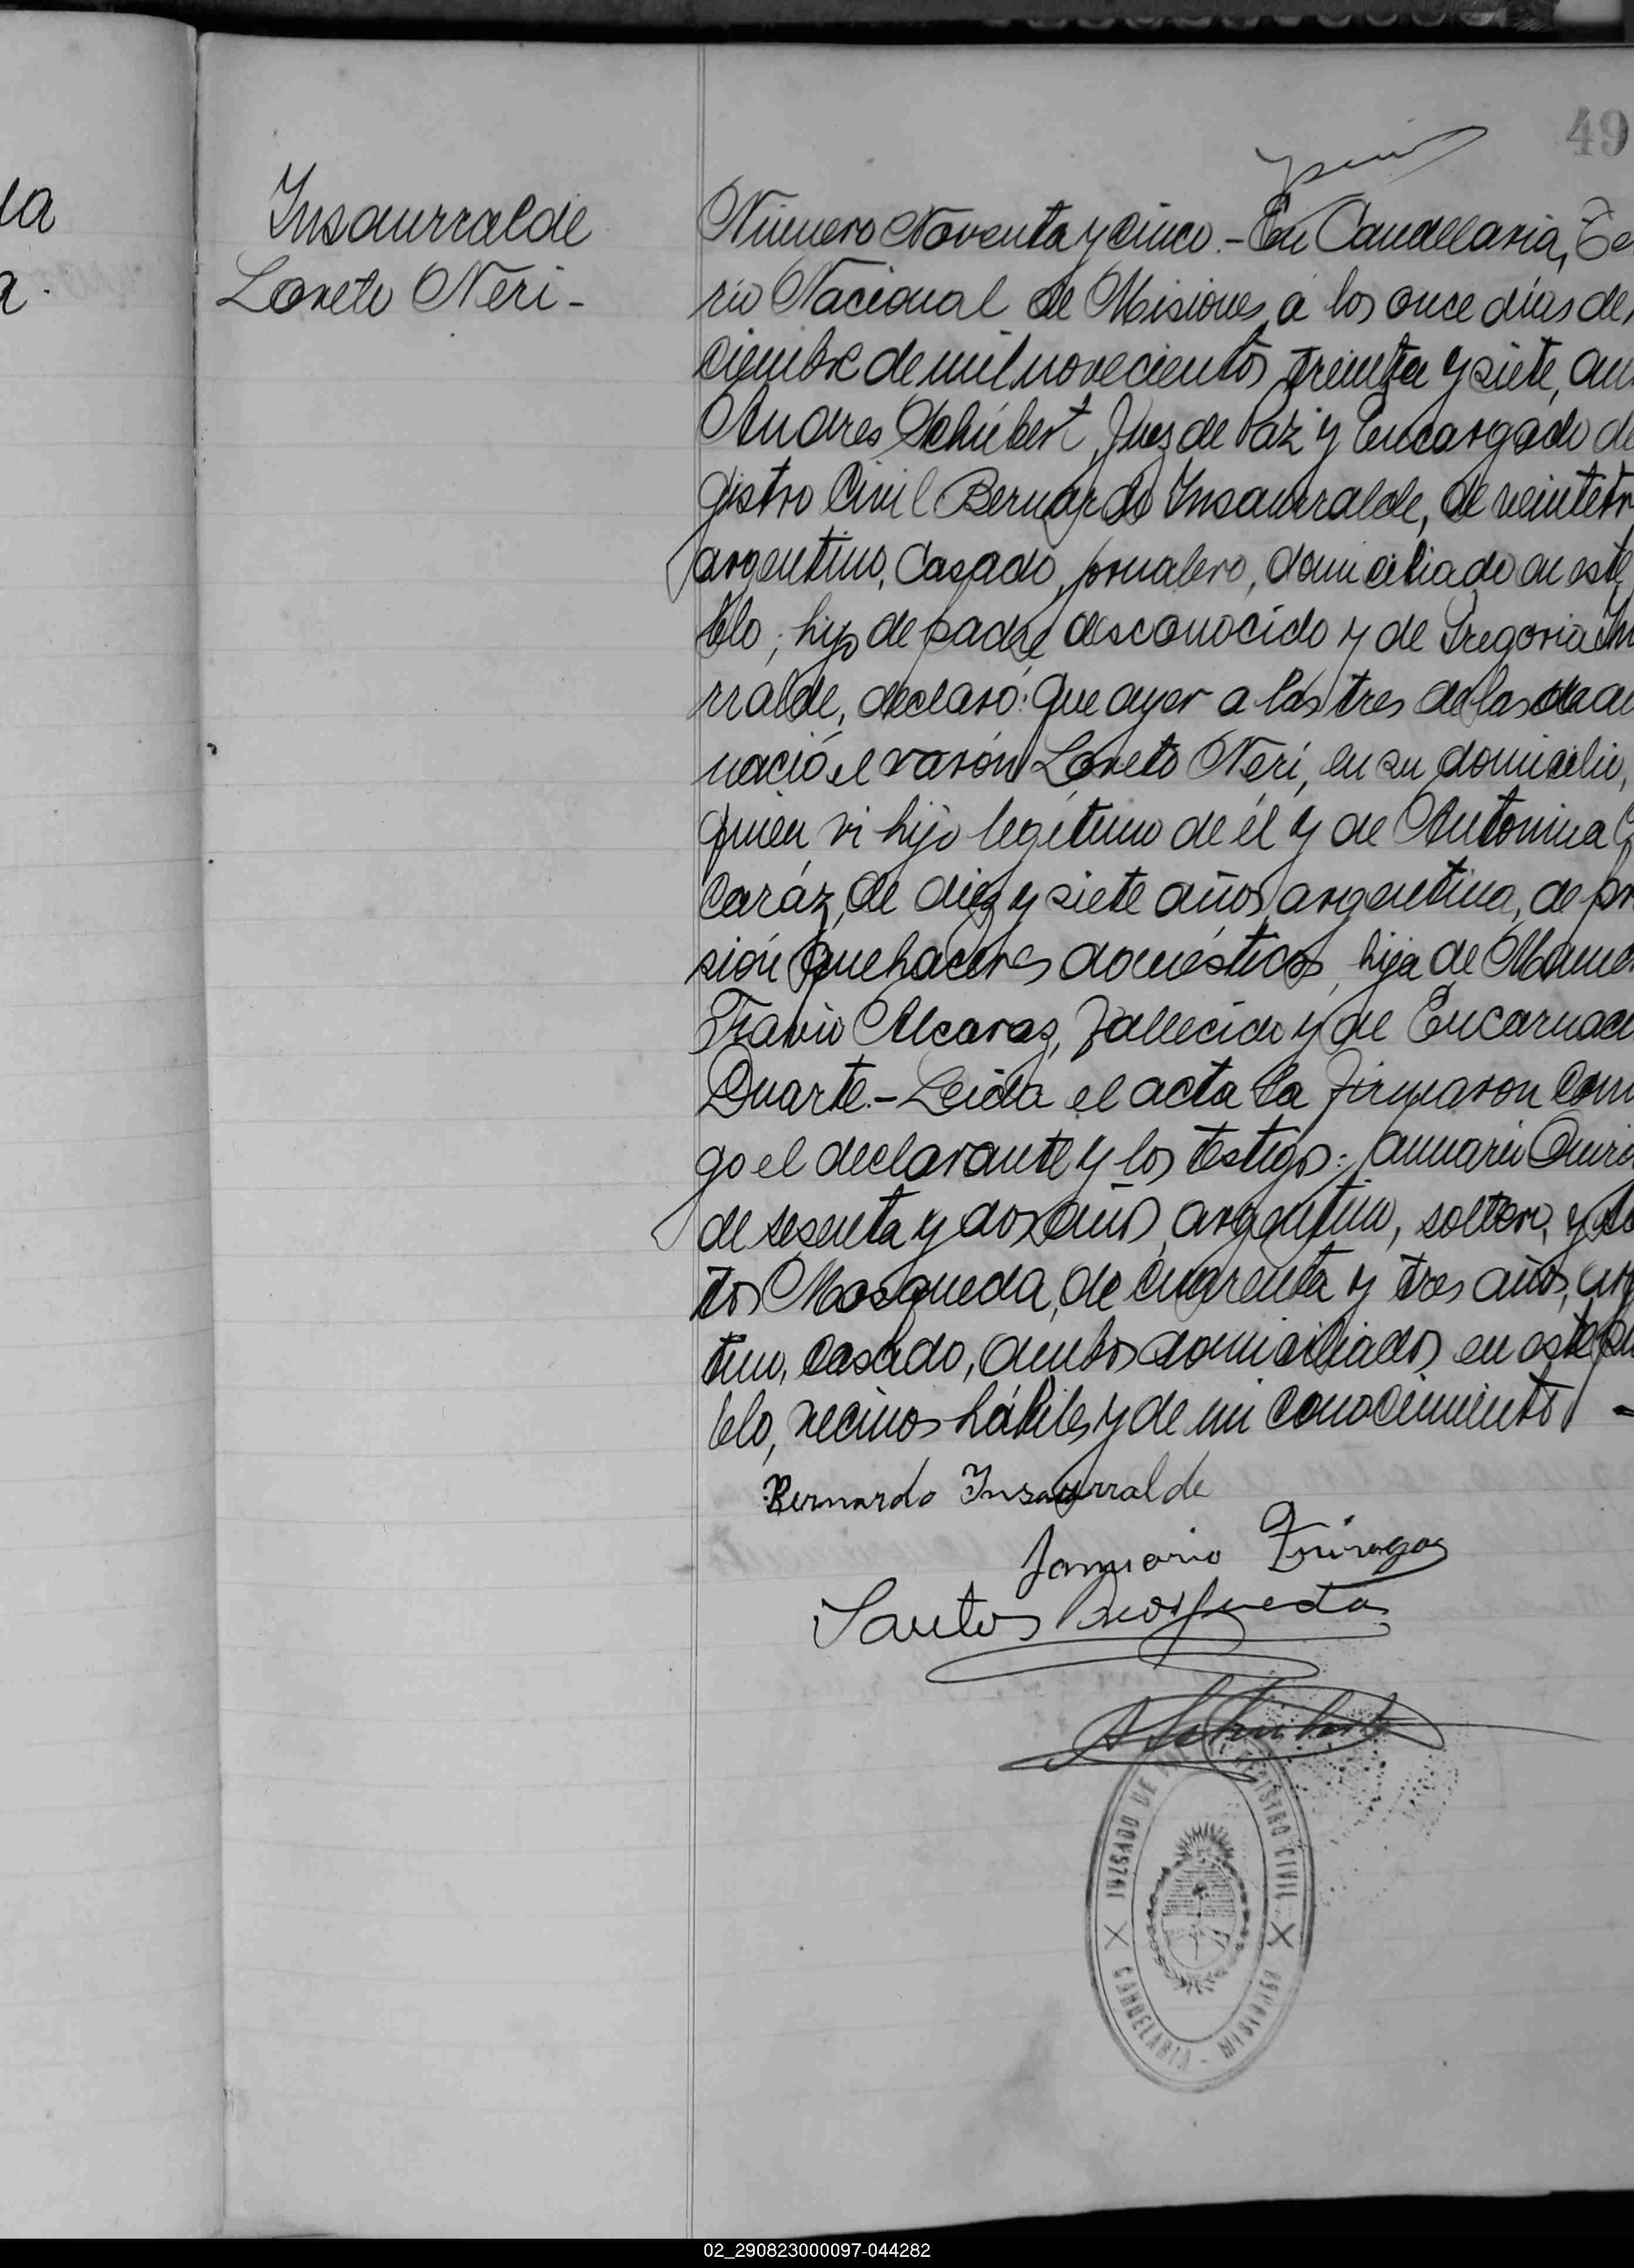 la
a.
49
Insaurralde
Loreto Neri-
Número Noventa y cinco.- En Candelaria, Te
rio Nacional de Misiones, a los once días de
ciembre de mil novecientos treinta y siete, an
Andres Schúbert, Juez de Paz y Encargado de
gistro Civil Bernardo Insaurralde, de veintetr
argentino, casado, jornalero, domiciliado en este
blo; hijo de padre desconocido y de Gregoria In
rralde, declaró: Que ayer a las tres de las
nació el varón Loreto Neri, en su domicilio,
quien vi hijo legítimo de él y de Antonina
Caráz, de diez y siete años, argentina, de pr
sión quehaceres domésticos, hija de
Alcaraz, fallecido y de Encarnac
Duarte.- Leida el acta la firmaron conm
go el declarante y los testigos: Quiro
de sesenta y dos años, argentino, soltero, y
tos Mosqueda, de cuarenta y tres años, arg
tino, casado, ambos domiciliados en este pu
blo, vecinos hábiles y de mi conocimiento -
Bernardo Insaurralde
Januario
Santos Mosqueda
A Schubert
JUZGADO DE REGISTRO CIVIL
CANDELARIA - MISIONES
02_290823000097-044282